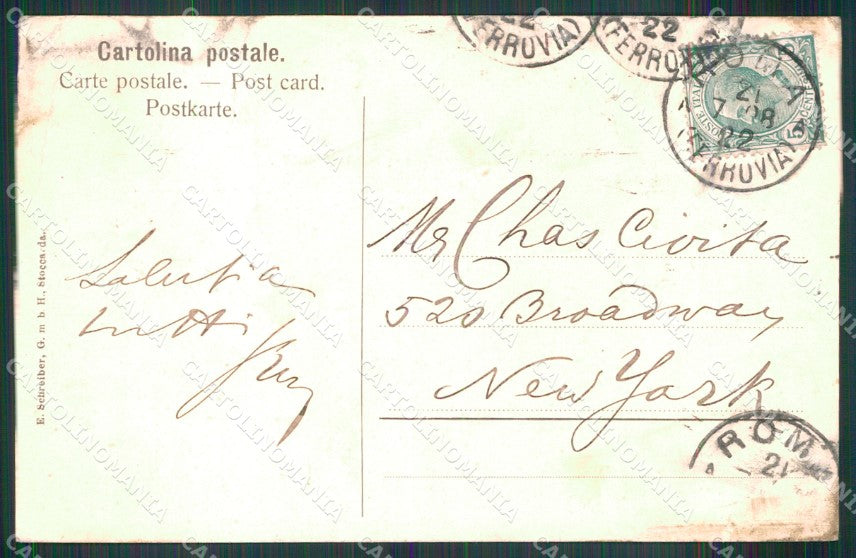 Cartolina postale.
Carte postale. — Post card.
Postkarte.
22
(FERROVIA)
22
(FERROVIA)
POSTE ITALIANE
21
7 08
22
(FERROVIA)
Mr Chas Civita
520 Broadway
New York
Saluti a
tutti
E. Schreiber, G. m b H., Stocca.da.
ROM
21
CARTOLINOMANIA